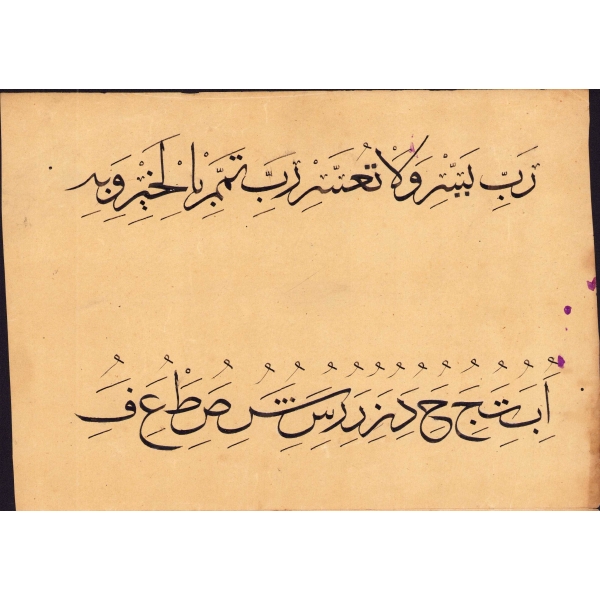 رَبِّ يَسِّرْ وَلَا تُعَسِّرْ رَبِّ تَمِّمْ بِالْخَيْرِ وَبِهِ
اُ بُ تُ جُ حُ دُ زُ رُ سُ شُ صُ طُ عُ فُ